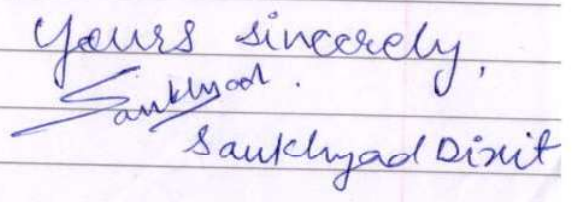 Yours sincerely,
Saukhyad.
Saukhyad Dixit